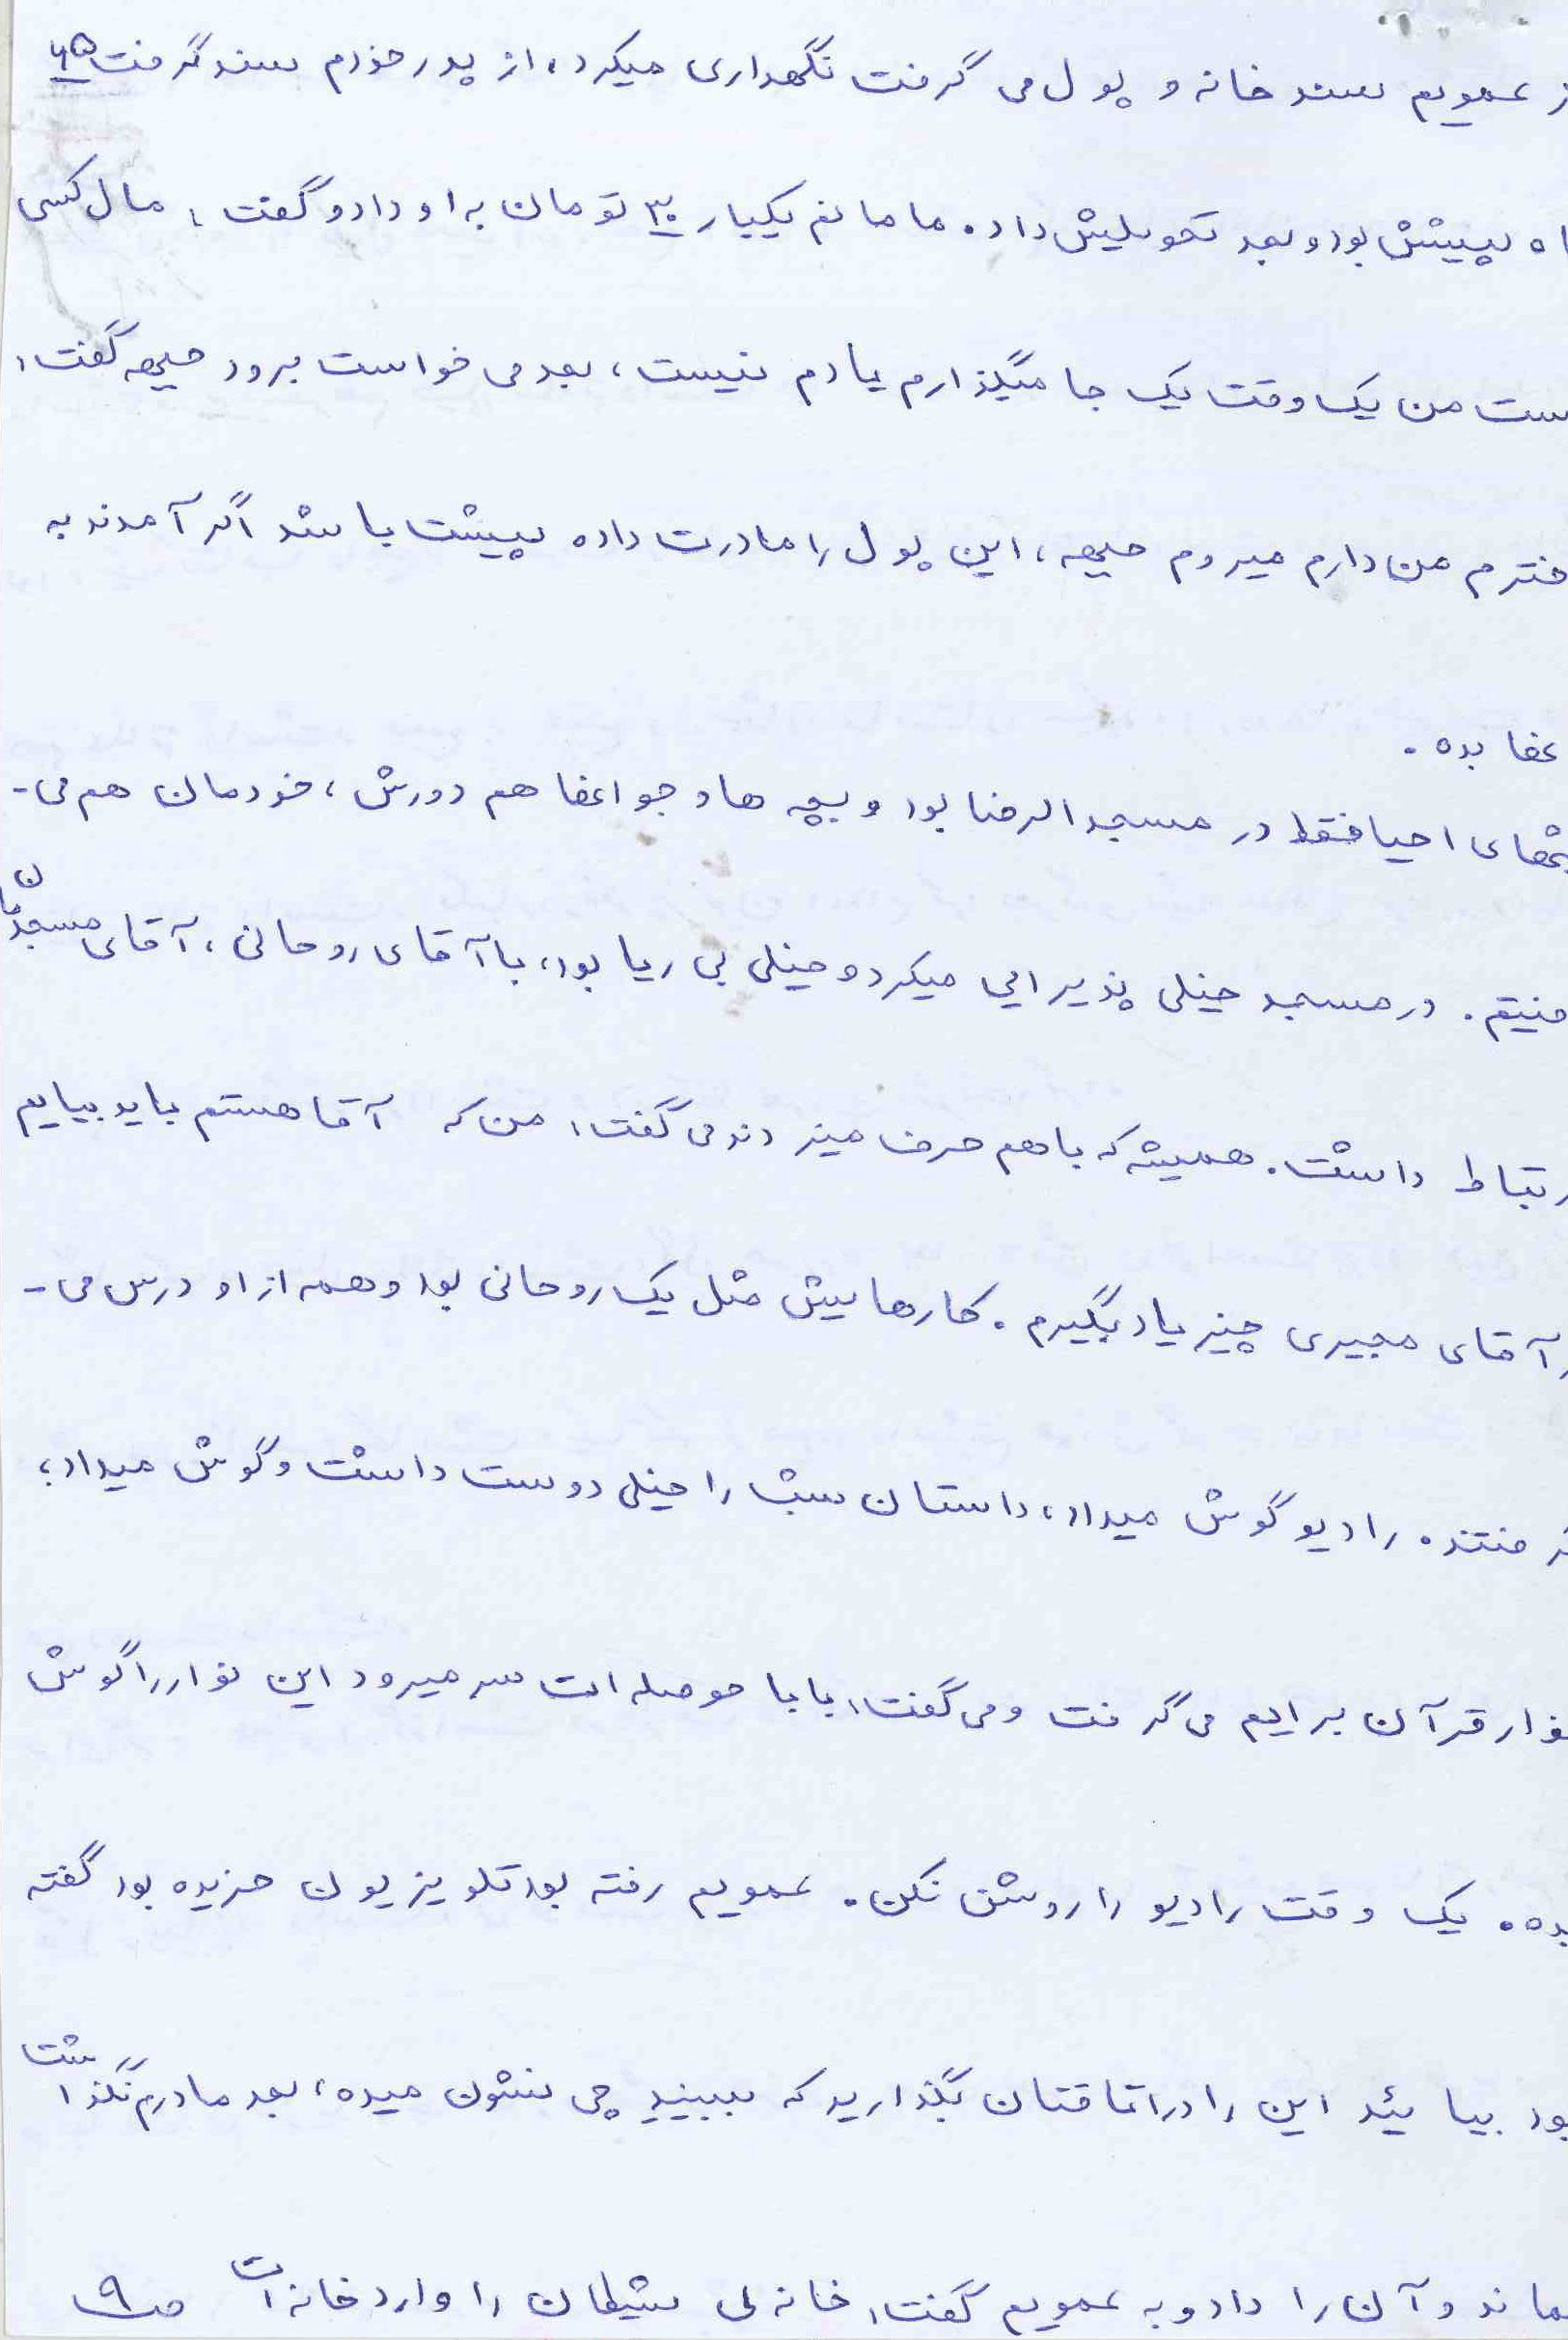 ز عمویم سند خانه و پول می گرفت نگهداری میکرد، از پدر خودم سند گرفت ۶۵
اه پیشش بود و بعد تحویلش داد. مامانم یکبار ۳۰ تومان به او داد و گفت: مال کسی
ست من یک وقت یک جا میگذارم یادم نیست، بعد می خواست برود جبهه گفت:
خترم من دارم میروم جبهه، این پول را مادرت داده پیشت باشد اگر آمدند به
نها بده.
بهای احیا فقط در مسجد الرضا بود و بچه ها و جوانها هم دورش، خودمان هم می-
فتیم. در مسجد خیلی پذیرایی میکرد و خیلی بی ریا بود، با آقای روحانی، آقای مسجدمان
رتباط داشت. همیشه که باهم حرف میزدند می گفت: من که آقا هستم باید بیایم
ز آقای مجیری چیز یاد بگیرم. کارهایش مثل یک روحانی بود و همه از او درس می-
گرفتند. رادیو گوش میداد، داستان شب را خیلی دوست داشت و گوش میداد؛
نوار قرآن برایم می گرفت و می گفت: بابا حوصله ات سر میرود این نوار را گوش
بده. یک وقت رادیو را روشن نکن. عمویم رفته بود تلویزیون خریده بود گفته
بود بیائید این را در اتاقتان بگذارید که ببینید چی نشون میده، بعد مادرم نگذاشت
بماند و آن را داد و به عمویم گفت: خانه ی شیطان را وارد خانه ات ص۹